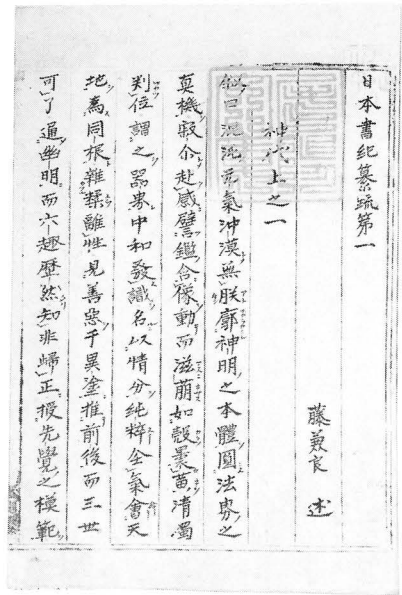 日本書紀纂疏第一
藤兼良 述
神代上之一
純曰混沌元氣冲漠無朕廓神明之本體圓法界之
真機寂尒赴感譬鑑含像動而滋萌如殼裏黄清濁
判位謂之器界中和發識名以情分純粹全氣會天
地為同根雜糅離性見善惡于異塗推前後而三世
可了通幽明而六趣歷然知非歸正授先覺之模範